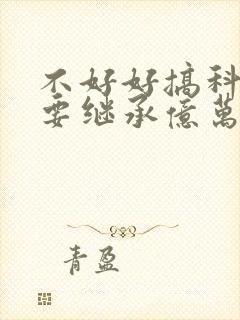 不好好搞科
要继承億萬
青盈